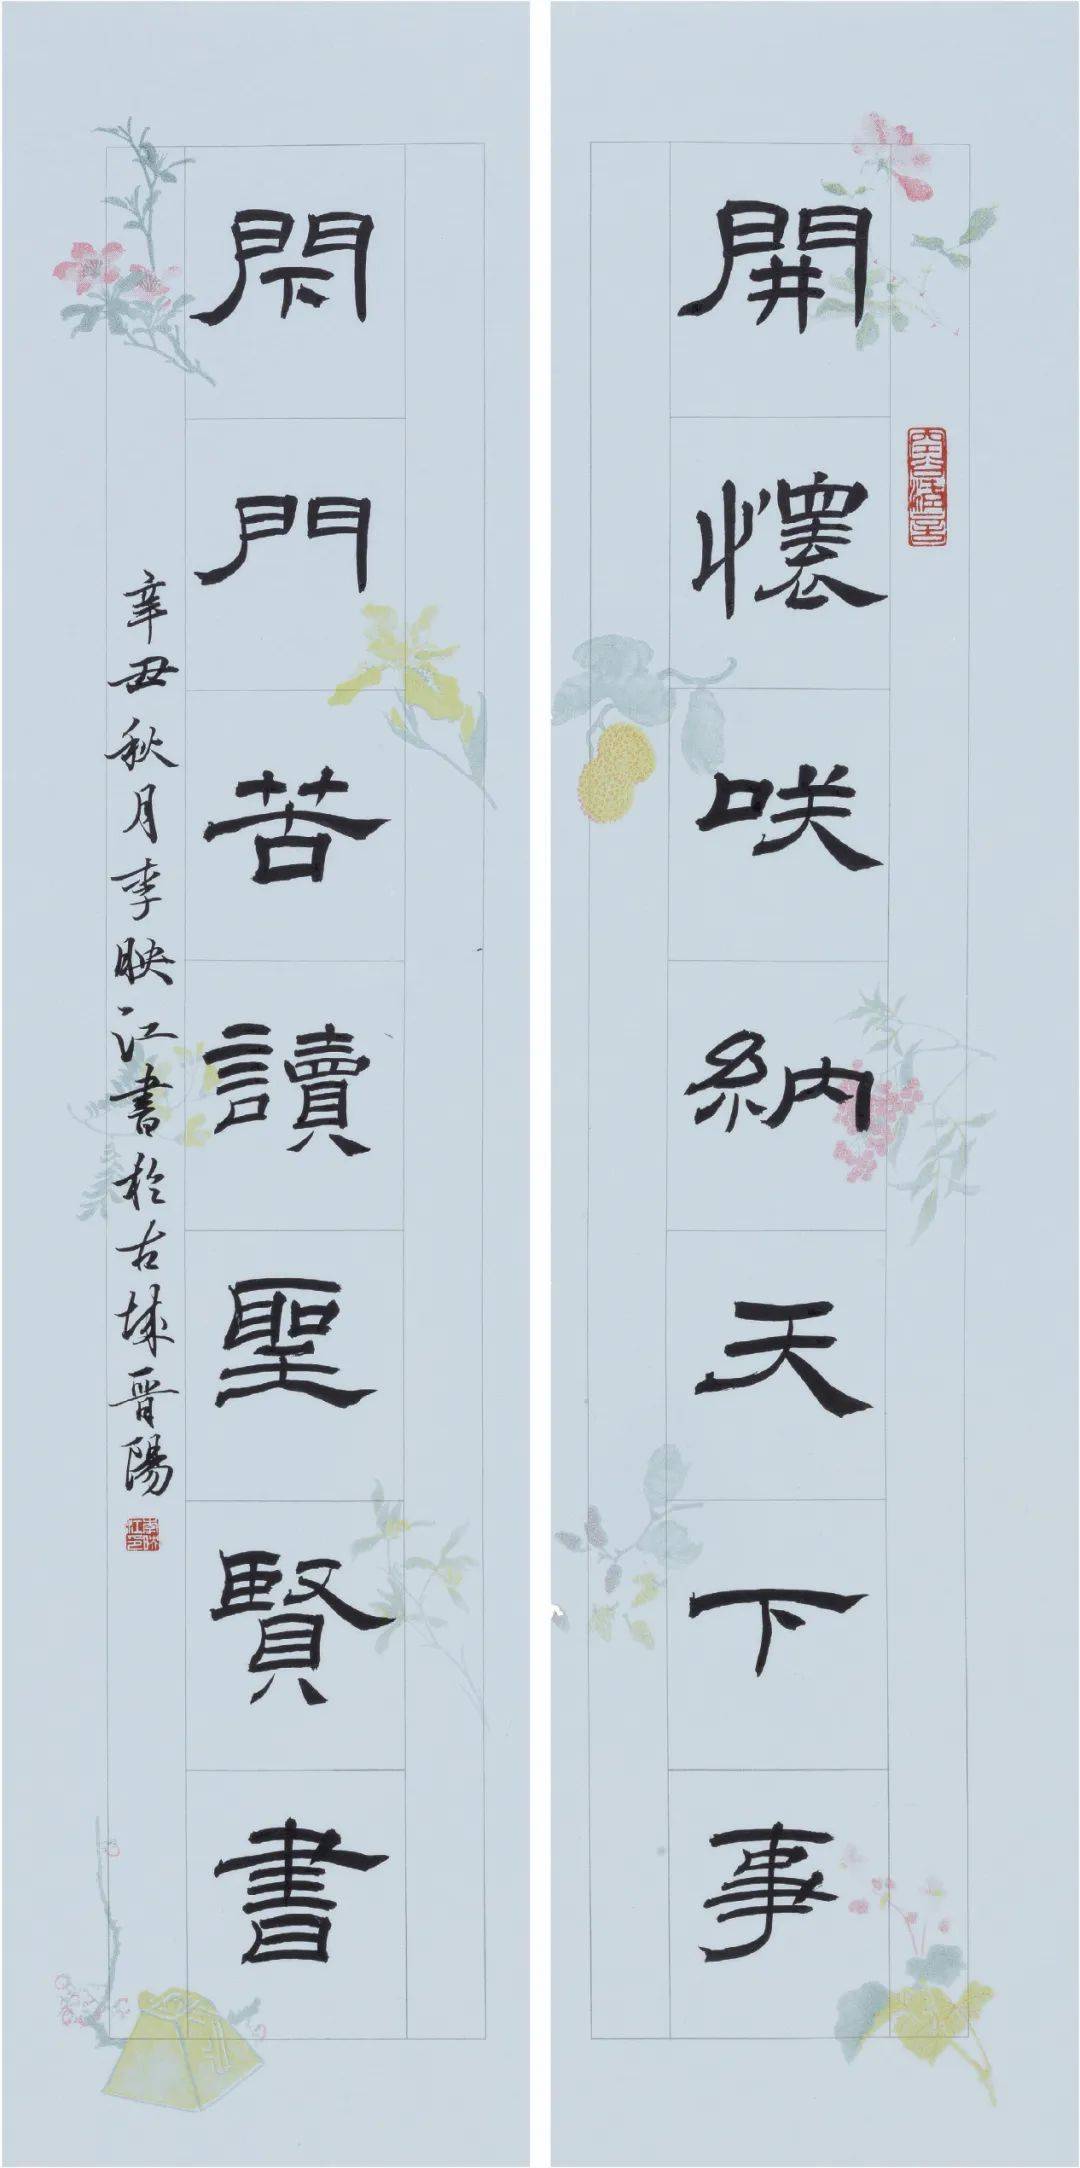 開懷咲納天下事
閇門苦讀聖賢書
辛丑秋月李映江書於古城晉陽